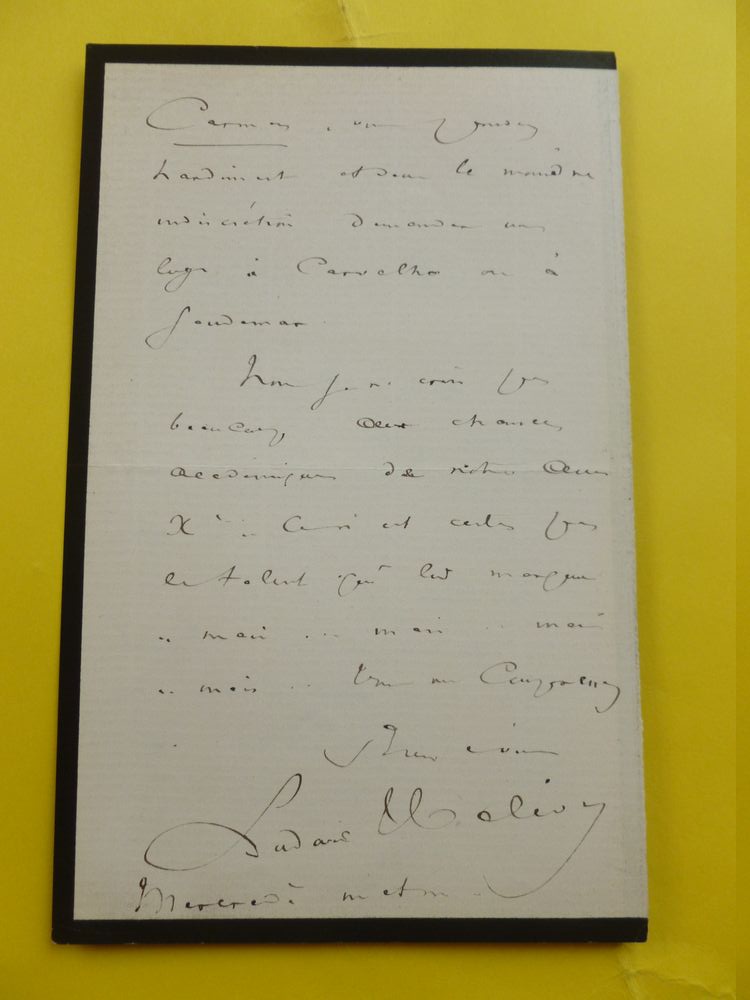 Carmen, vous pouvez
hardiment et sans la moindre
indiscrétion demander une
loge à Carvalho ou à
Gaudemar.
Non je ne crois pas
beaucoup aux chances
académiques de notre
X... Ce n'est certes pas
le talent qui lui manque
.. mais ... mais .. mais
.. mais .. Vous me comprenez
Bien à vous
Ludovic Halévy
Mercredi matin.